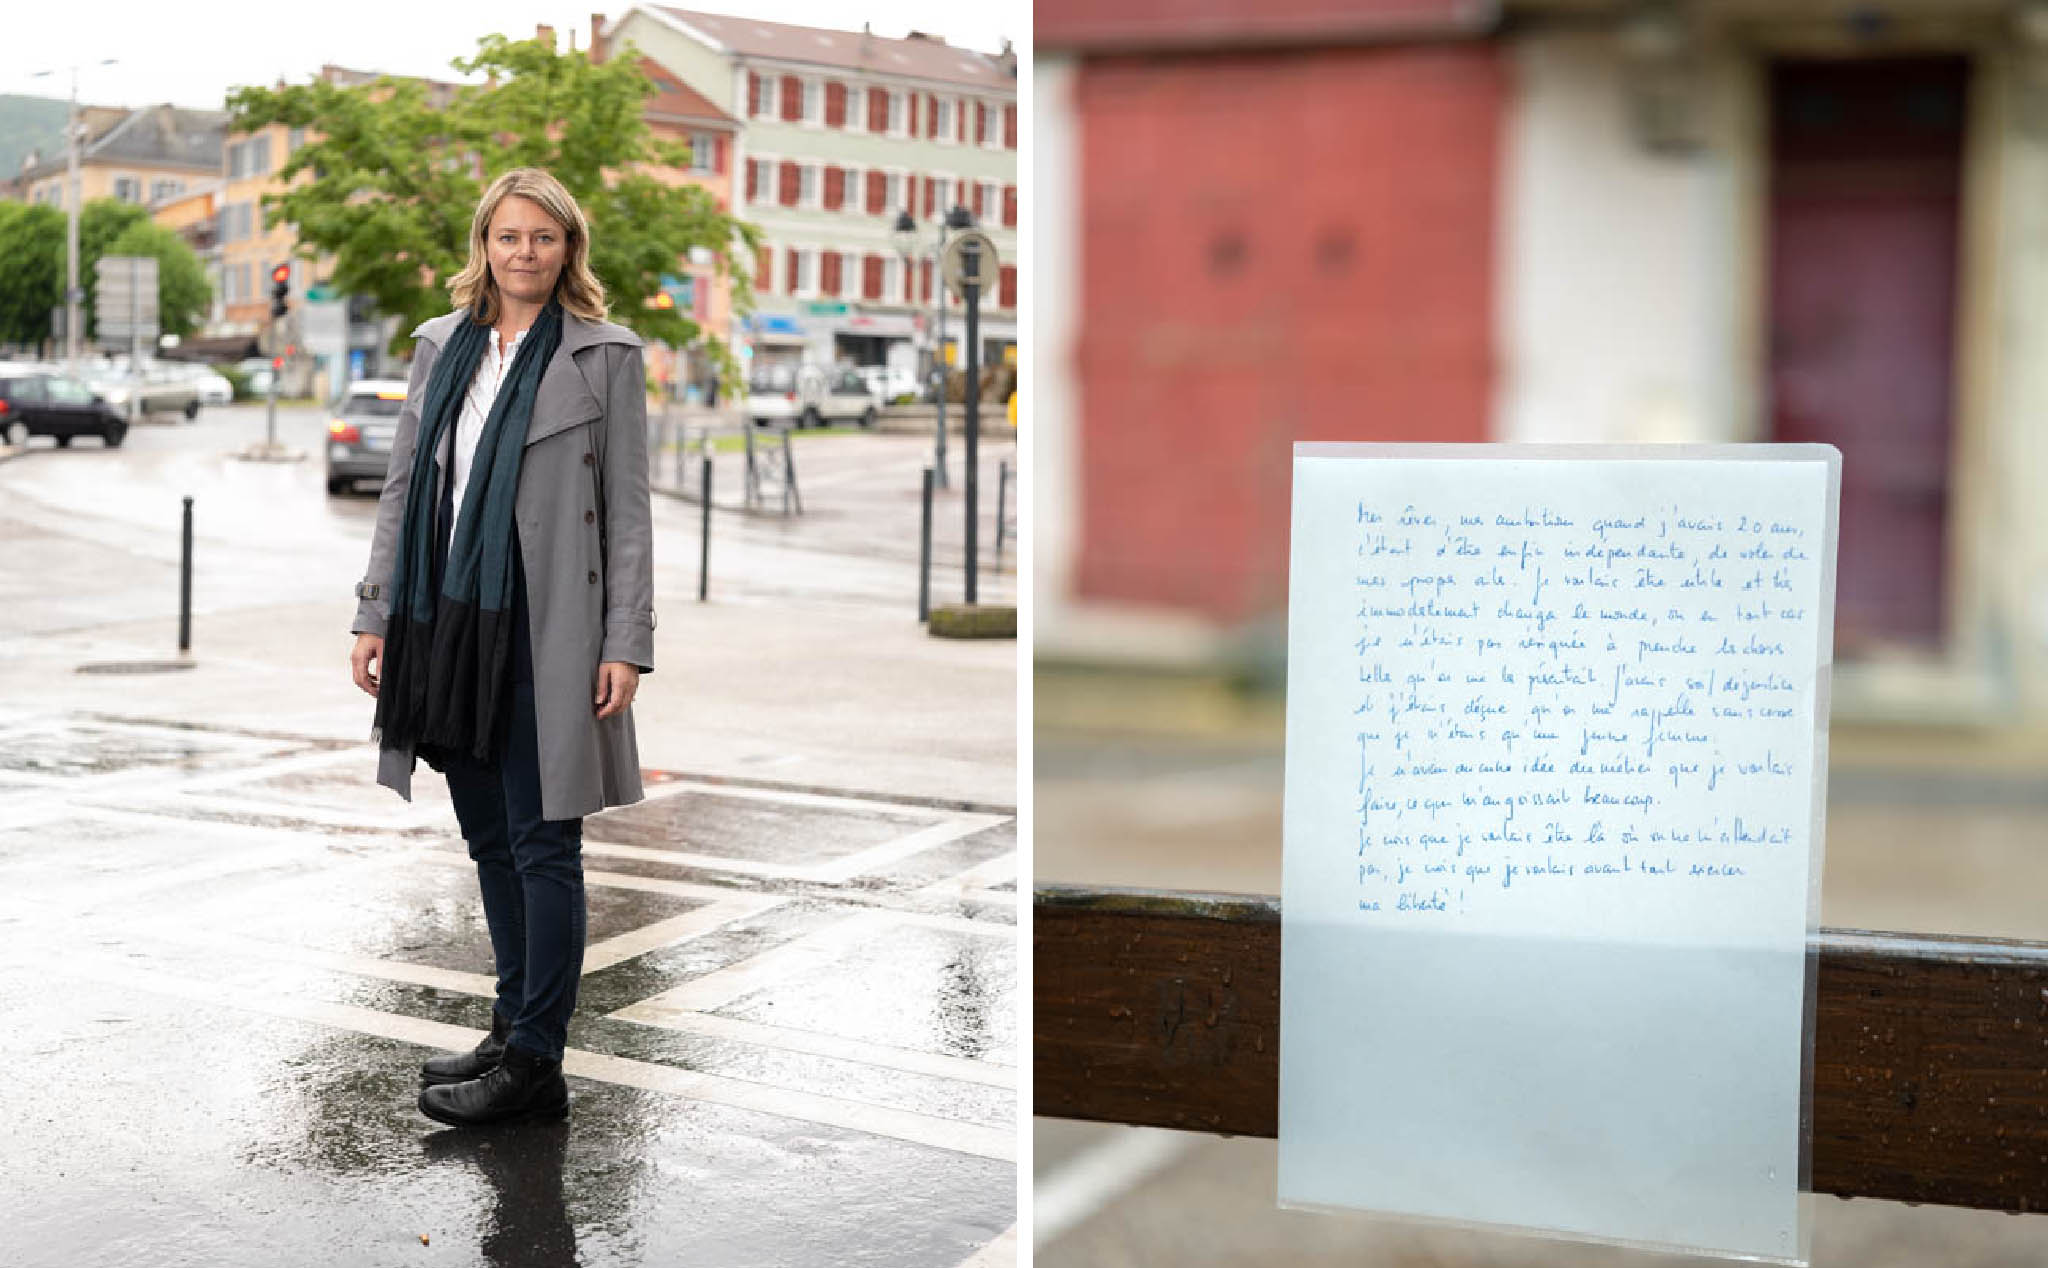 Mes rêves, mes ambitions quand j'avais 20 ans,
c'était d'être enfin indépendante, de voler de
mes propres ailes. Je voulais être utile et très
immodestement changer le monde, ou en tout cas
je n'étais pas résignée à prendre les choses
telles qu'on me les présentait. J'avais soif de justice
et j'étais déçue qu'on me rappelle sans cesse
que je n'étais qu'une jeune femme.
Je n'avais aucune idée du métier que je voulais
faire, ce qui m'angoissait beaucoup.
Je crois que je voulais être là où on ne m'attendait
pas, je crois que je voulais avant tout exercer
ma liberté !